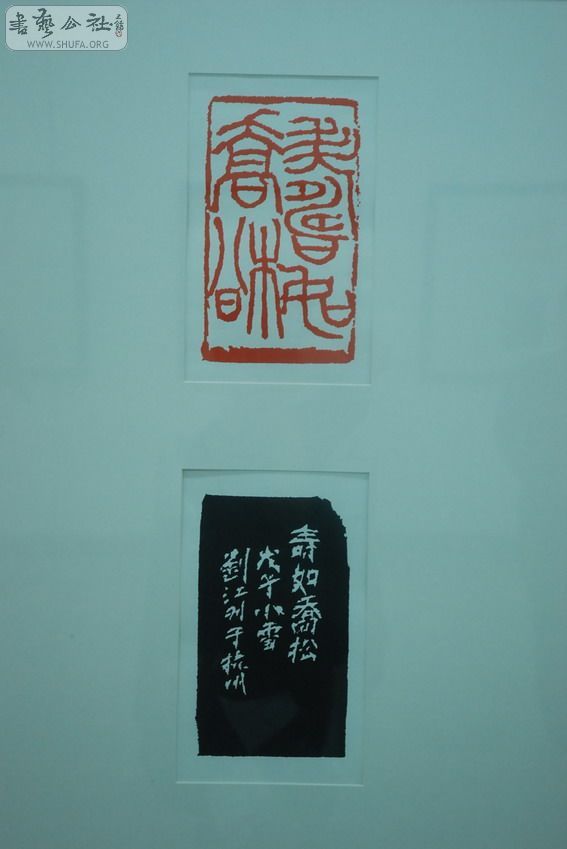 書藝公社
WWW.SHUFA.ORG
壽如
喬松
寿如喬松
戊午小雪
劉江刊于杭州